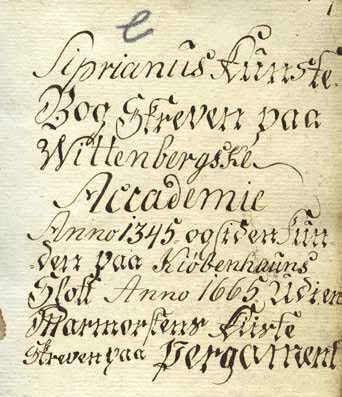 e
Siprianus Kunste
Bog Skreven paa
Wittenbergske
Accademie
Anno 1345 og siden fun
den paa Kiöbenhauns
Slott Anno 1665, Udi en
Marmorstens Kiiste
skreven paa Pergament